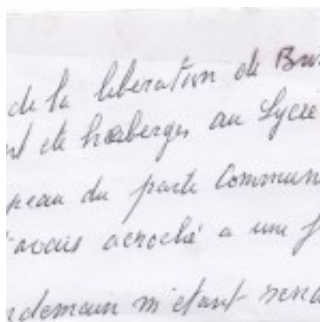 de la liberation de Bri
nt ete hœberges au Lycée
peau du parte Commun
j'avais acroché a une f
ndemain m'etant rend